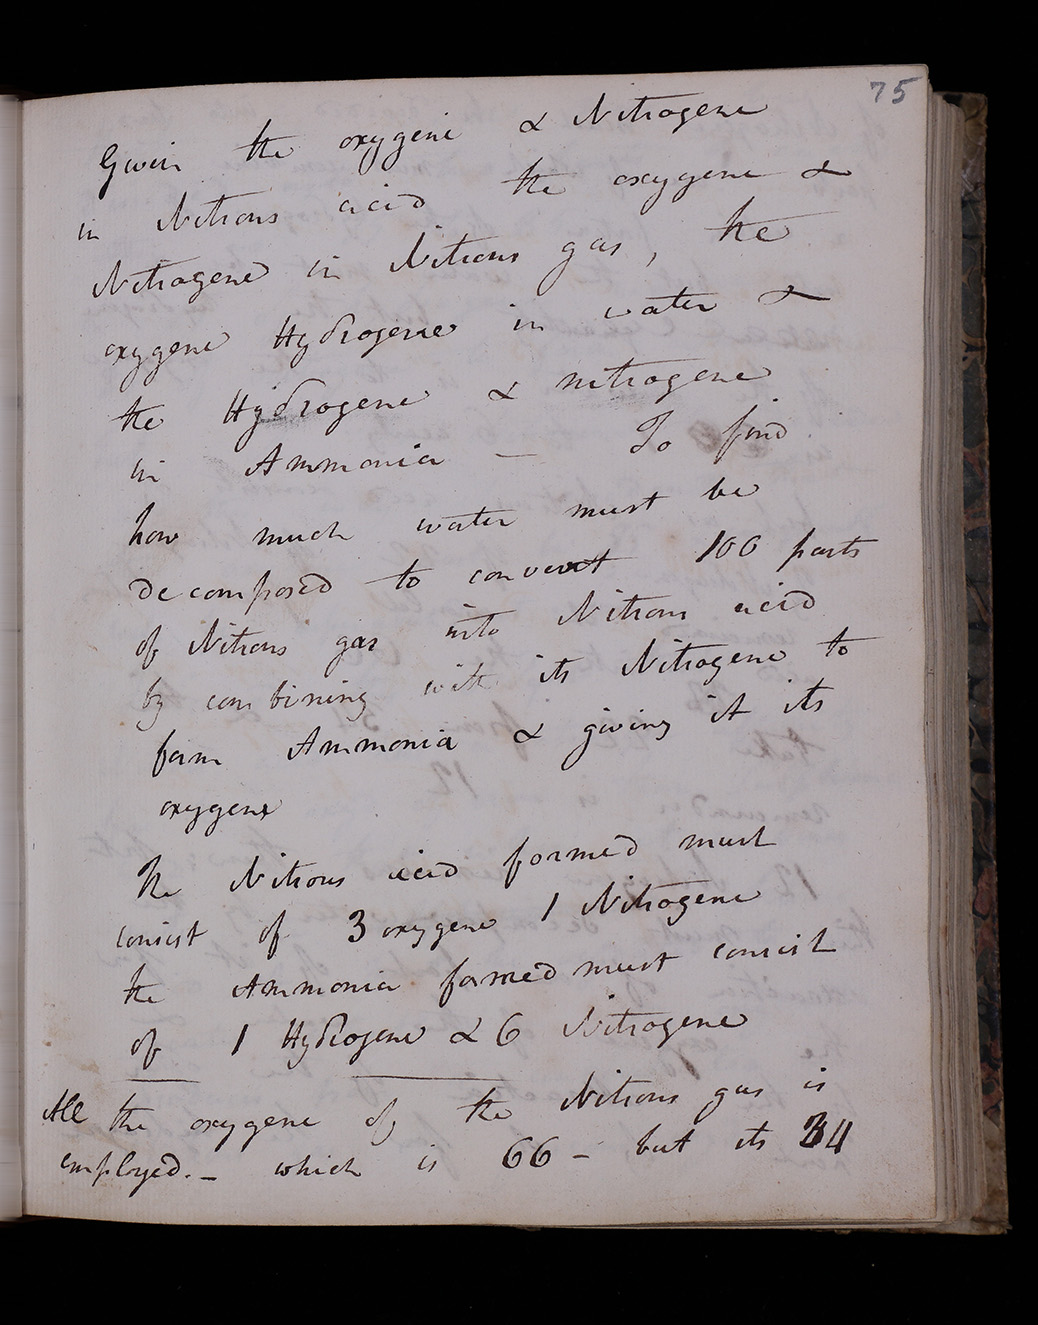 75
Given the oxygene & Nitrogene
in Nitrous acid the oxygene &
Nitrogene in Nitrous gas, the
oxygene Hydrogene in water &
the Hydrogene & nitrogene
in Ammonia — To find
how much water must be
decomposed to convert 100 parts
of Nitrous gas into Nitrous acid
by combining with its Nitrogene to
form Ammonia & giving it its
oxygene
The Nitrous acid formed must
consist of 3 oxygene 1 Nitrogene
the Ammonia formed must consist
of 1 Hydrogene & 6 Nitrogene
All the oxygene of the Nitrous gas is
employed. — which is 66 – but its 34